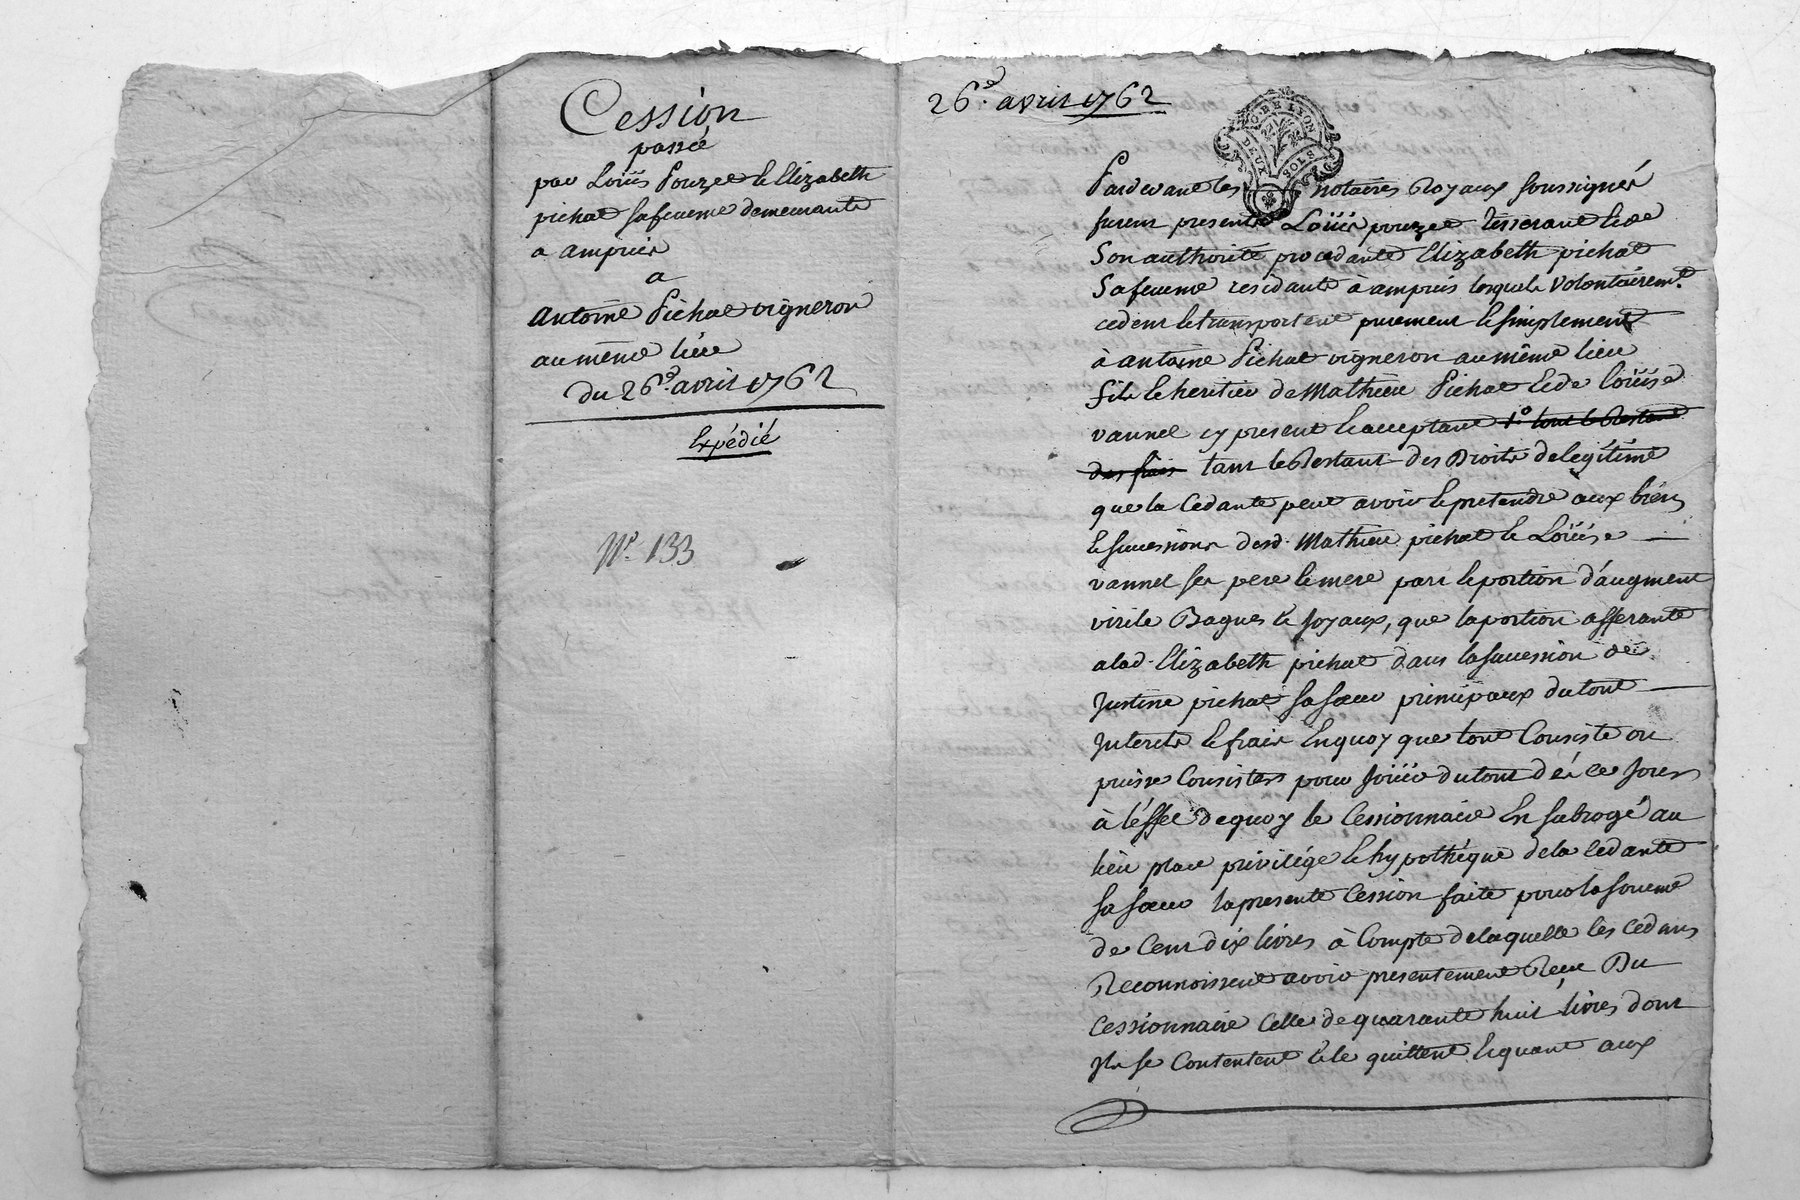 Cession
passée
par Loüis Pouzet & Elizabeth
pichat sa femme demeurants
a ampuis
a
Antoine Pichat vigneron
au même lieu
du 26e. avril 1762
Expédié
No. 133
26e. avril 1762
G. DE LYON
DEUX SOLS
Pardevant les notaires Royaux soussignés
furent presents Loüis pouzet tisserant & de
Son authorité procedante Elizabeth pichat
Sa femme residants à ampuis lesquels volontairemt.
cedent & transportent purement & simplement
à antoine Pichat vigneron au même lieu
fils & heritier de Mathieu Pichat & de loüise
vannel cy present & acceptant 1o tout le Restant
des frais tant le Restant des Droits de legitime
que la Cedante peut avoir & pretendre aux biens
& successions desd. Mathieu pichat & Loüise
vannel ses pere & mere part & portion d'augment
virile Bagues & Joyaux, que la portion afferante
a lad. Elizabeth pichat dans la succession de
Justine pichat sa sœur principaux du tout
Interets & frais En quoy que tout Consiste ou
puisse Consister pour Joüir du tout dés ce Jour
à l'éffet de quoy le Cessionnaire Est subrogé au
lieu place privilége & hypothéque de la cedante
sa sœur la presente Cession faite pour la somme
de Cent dix livres à Compte de laquelle les cedans
Reconnoissent avoir presentement Receu Du
Cessionnaire Celle de quarante huit livres dont
Ils se Contentent & le quittent & quant aux